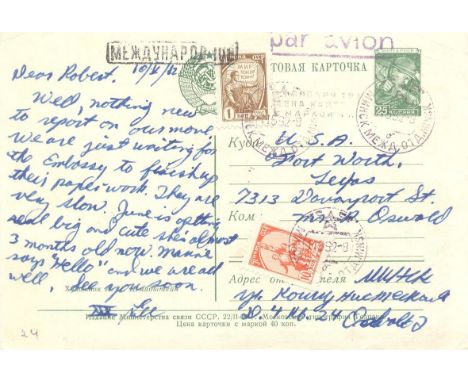 МЕЖДУНАРОДНОЕ
par avion
10/V/62
Dear Robert.
Well, nothing new
to report on ours move
We are just waiting for
the Embassy to finishing
their paperwork. They are
very slow. June is getting
real big and cute she's almost
3 months old now. Marine
says "Hello" and we are all
well. See you soon.
Lee
ПОЧТОВАЯ КАРТОЧКА
МИР
1
25
Куда
U.S.A.
Fort Worth,
Texas
7313 Davenport St
Кому
Mr. R. Oswald
Адрес отправителя
МИНСК
ул. Коммунистическая
д. 4 кв. 24
Издание Министерства связи СССР. 22/II
Цена карточки с маркой 40 коп.
24